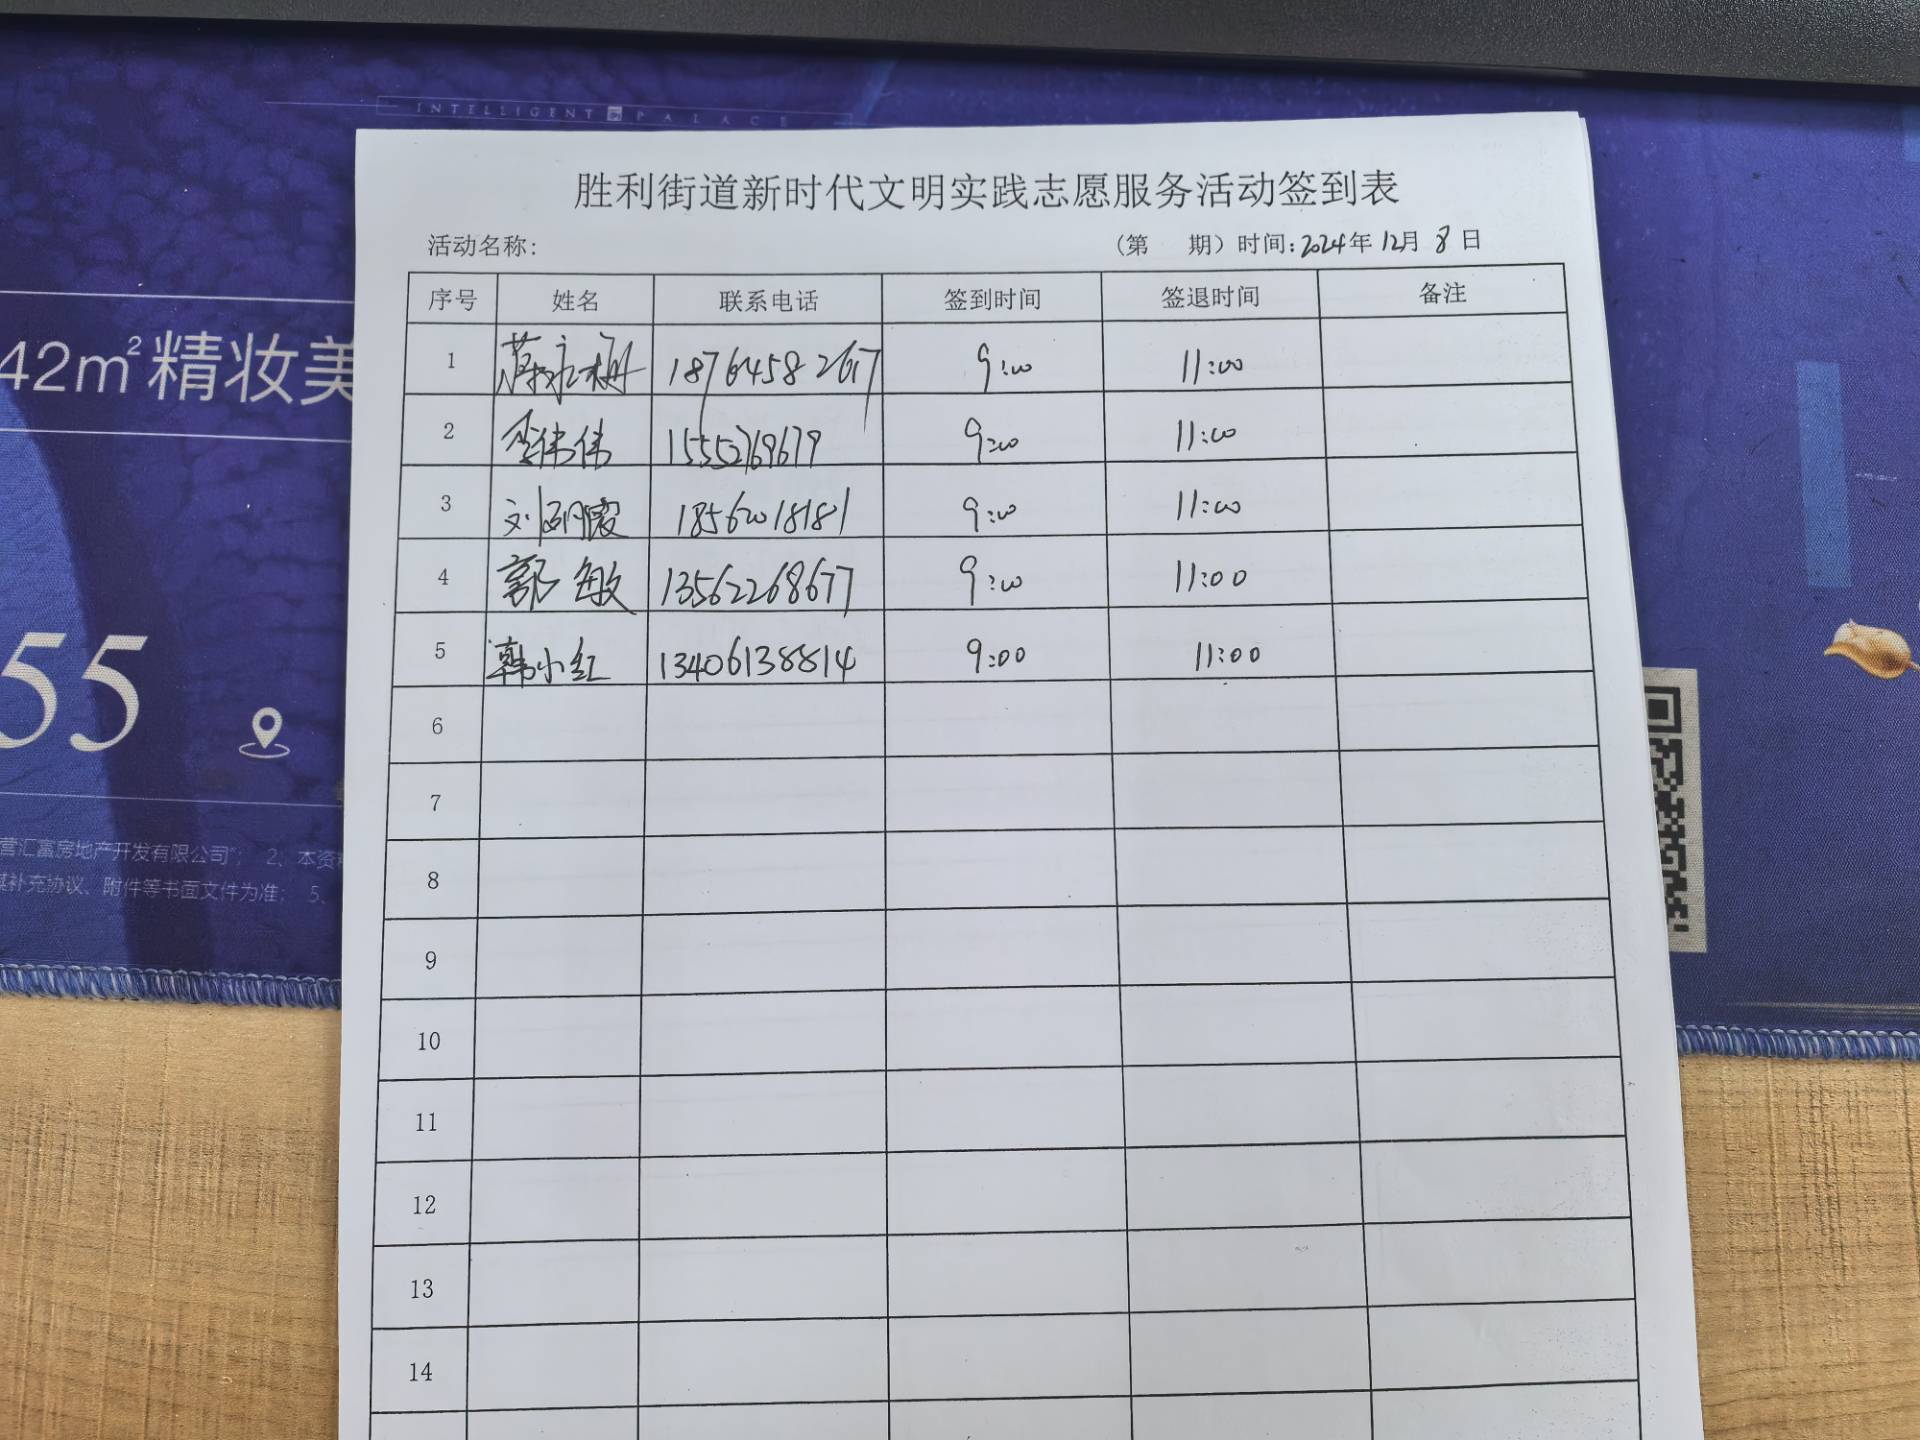 INTELLIGENT PALACE
胜利街道新时代文明实践志愿服务活动签到表
活动名称: （第 期）时间:2024年12月8日
序号 姓名 联系电话 签到时间 签退时间 备注
1 18764582617 9:00 11:00
2 李伟伟 15552769679 9:00 11:00
3 刘丽霞 18562018181 9:00 11:00
4 郭敏 13562268677 9:00 11:00
5 韩小红 13406138814 9:00 11:00
6
7
8
9
10
11
12
13
14
42m²精妆美
55
营汇富房地产开发有限公司”； 2、本资
补充协议、附件等书面文件为准； 5、